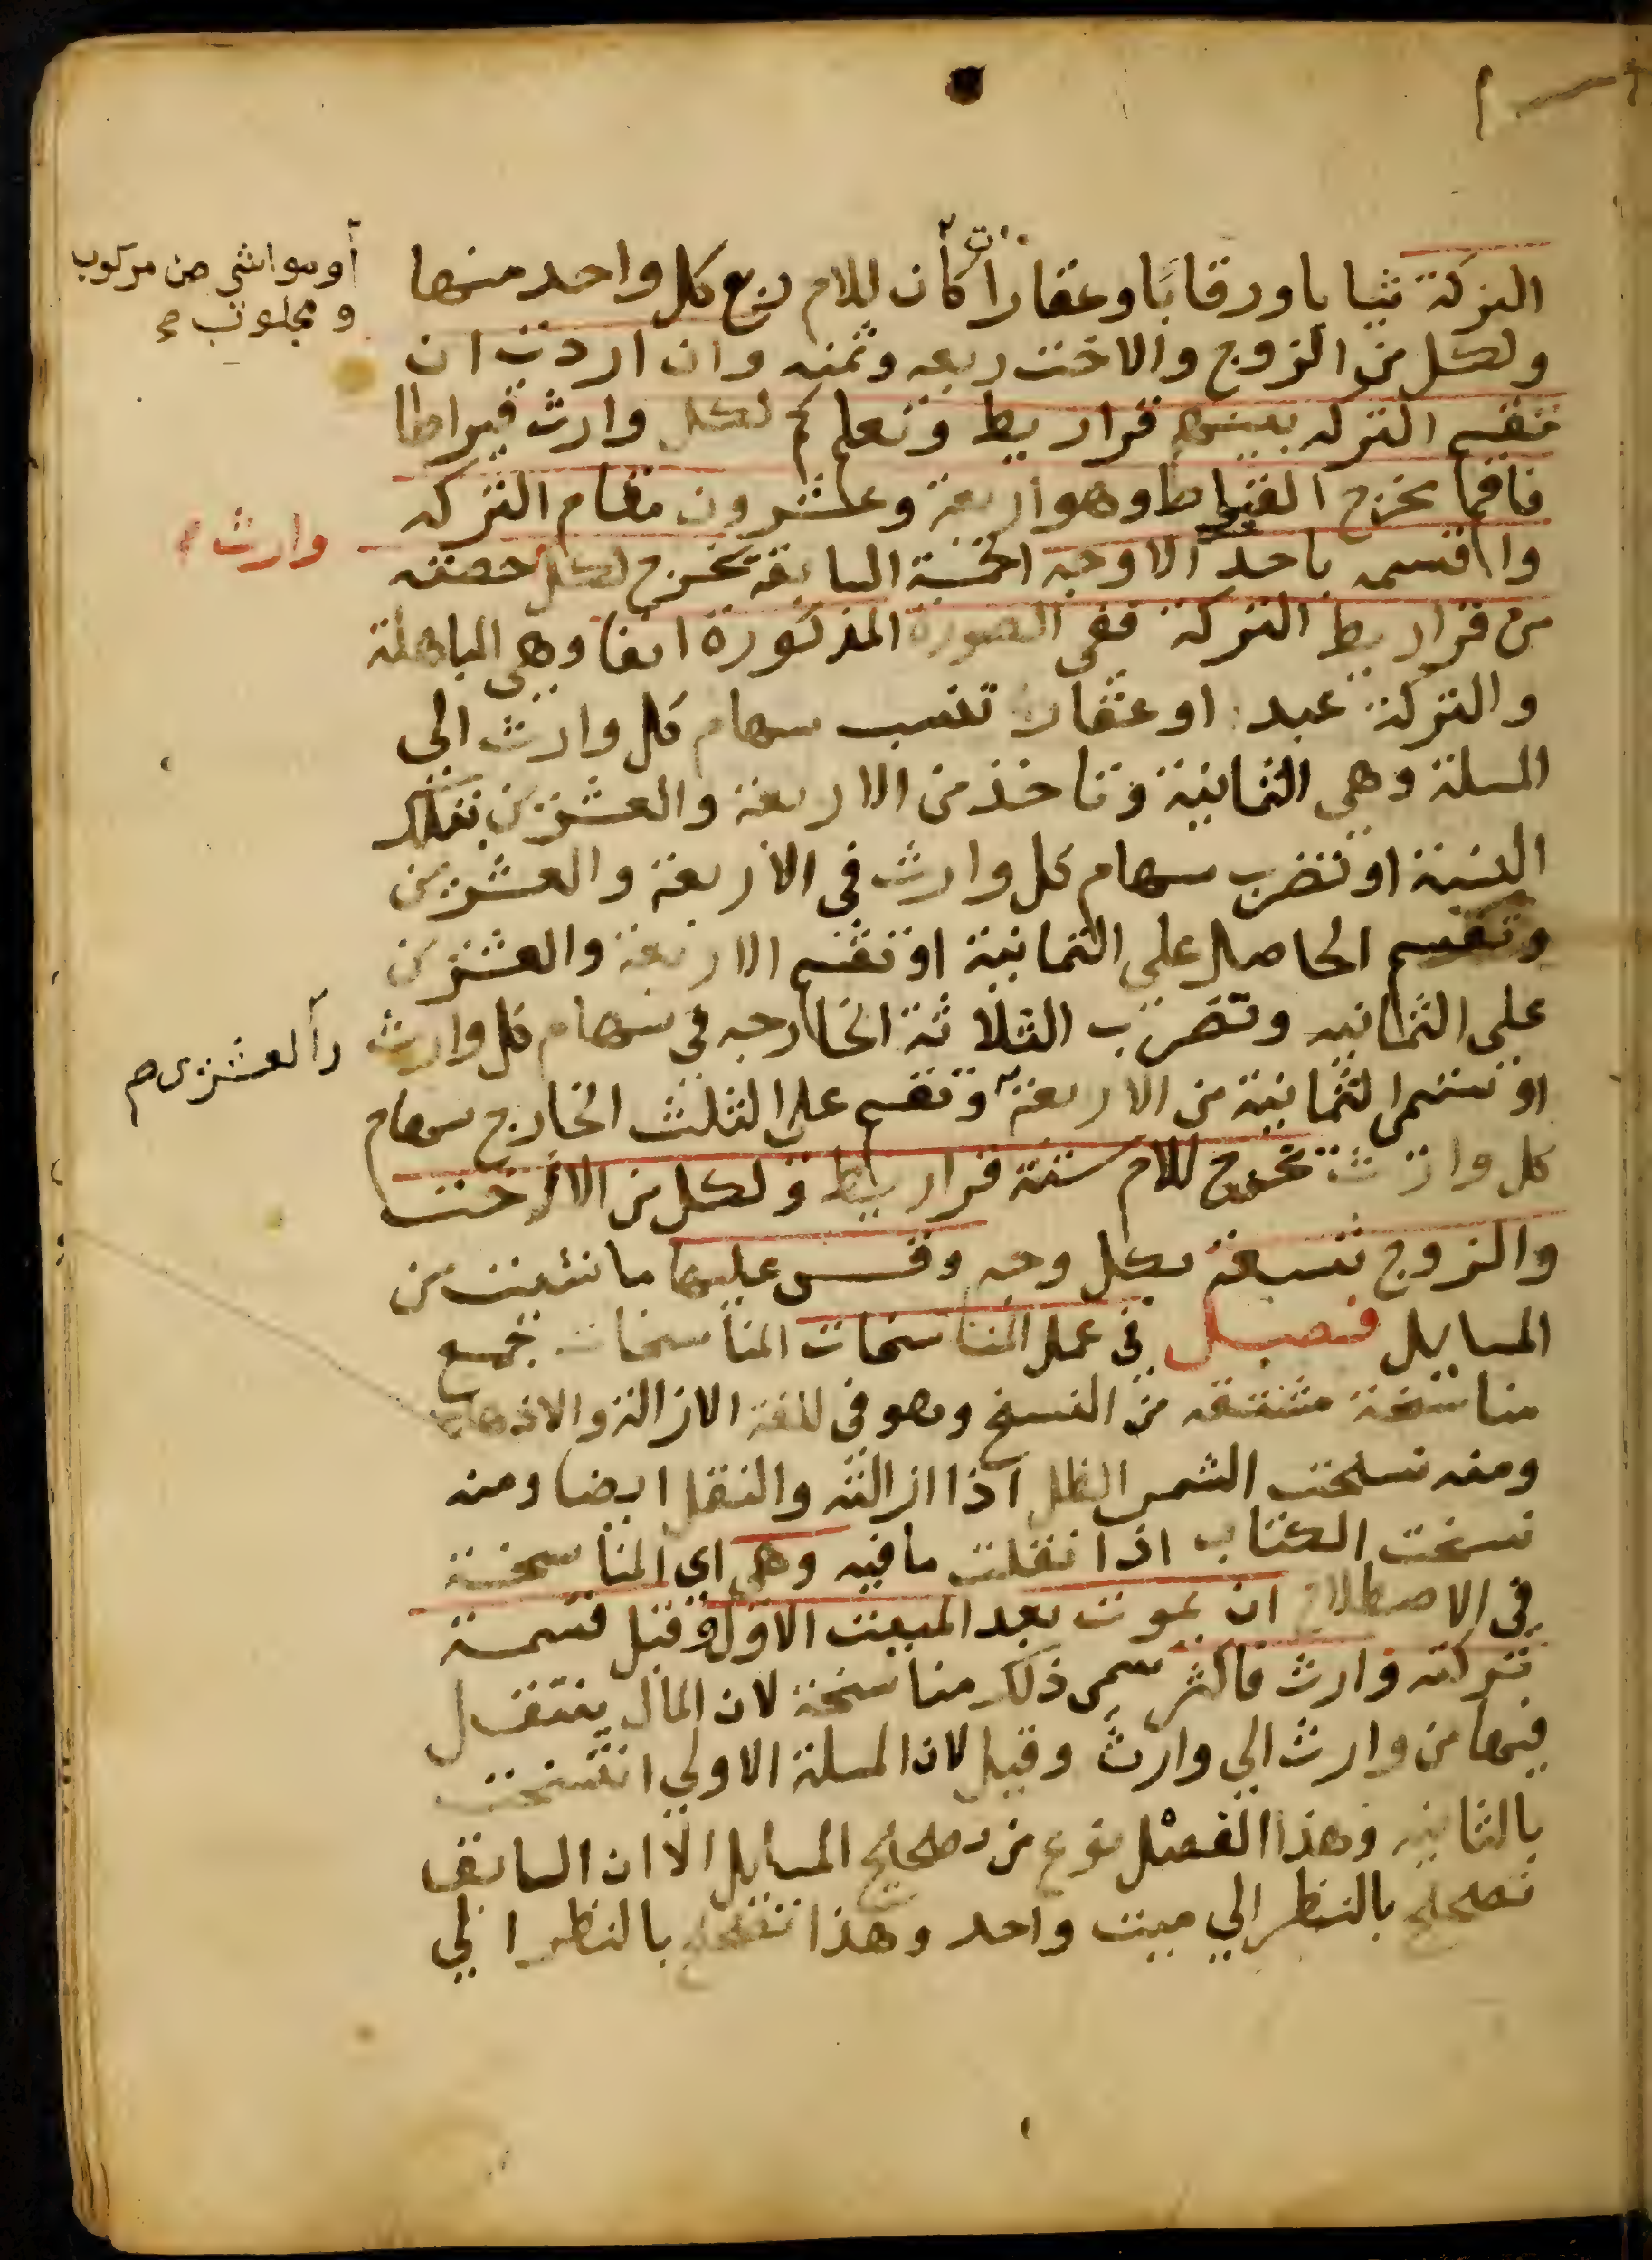 التركة ثيابا ورقابا وعقارا كان للام ربع كل واحد منها
أو مواشى من مركوب
ومجلوب
ولكل من الزوج والاخت ربعه وثمنه وان اردت ان
تقسم التركه بينهم قراريط وتعلم كم لكل وارث قيراطا
فاقم مخرج القيراط وهو اربعة وعشرون مقام التركه
واقسمه باحد الاوجه الخمسة السابقة يخرج لكل حصته
وارث
من قراريط التركة ففى الصورة المذكورة انفا وهى المباهلة
والتركة عبد او عقار تنسب سهام كل وارث الى
المسلة وهى الثمانية وتاخذ من الاربعة والعشرين بتلك
النسبة او تضرب سهام كل وارث فى الاربعة والعشرين
وتقسم الحاصل على الثمانية او تقسم الاربعة والعشرين
على الثمانيه وتضرب الثلاثة الخارجه فى سهام كل وارث
والعشرين
او تسمى الثمانية من الاربعة وتقسم على الثلث الخارج سهام
كل وارث يخرج للام ستة قراريط ولكل من الاخت
والزوج تسعة بكل وجه وقس عليها ما شئت من
المسايل فصل فى عمل المناسخات المناسخات جمع
مناسخة مشتقه من النسخ وهو فى اللغة الازالة والاذهاب
ومنه نسخت الشمس الظل اذا ازالته والنقل ايضا ومنه
نسخت الكتاب اذا نقلت ما فيه وهى اي المناسخة
فى الاصطلاح ان يموت بعد الميت الاول وقبل قسمة
تركته وارث فاكثر سمى ذلك مناسخة لان المال ينتقل
فيها من وارث الي وارث وقيل لان المسلة الاولي انتسخت
بالثانيه وهذا الفصل نوع من تصحيح المسايل الا ان السابق
تصحيح بالنظر الي ميت واحد وهذا تصحيح بالنظر الي